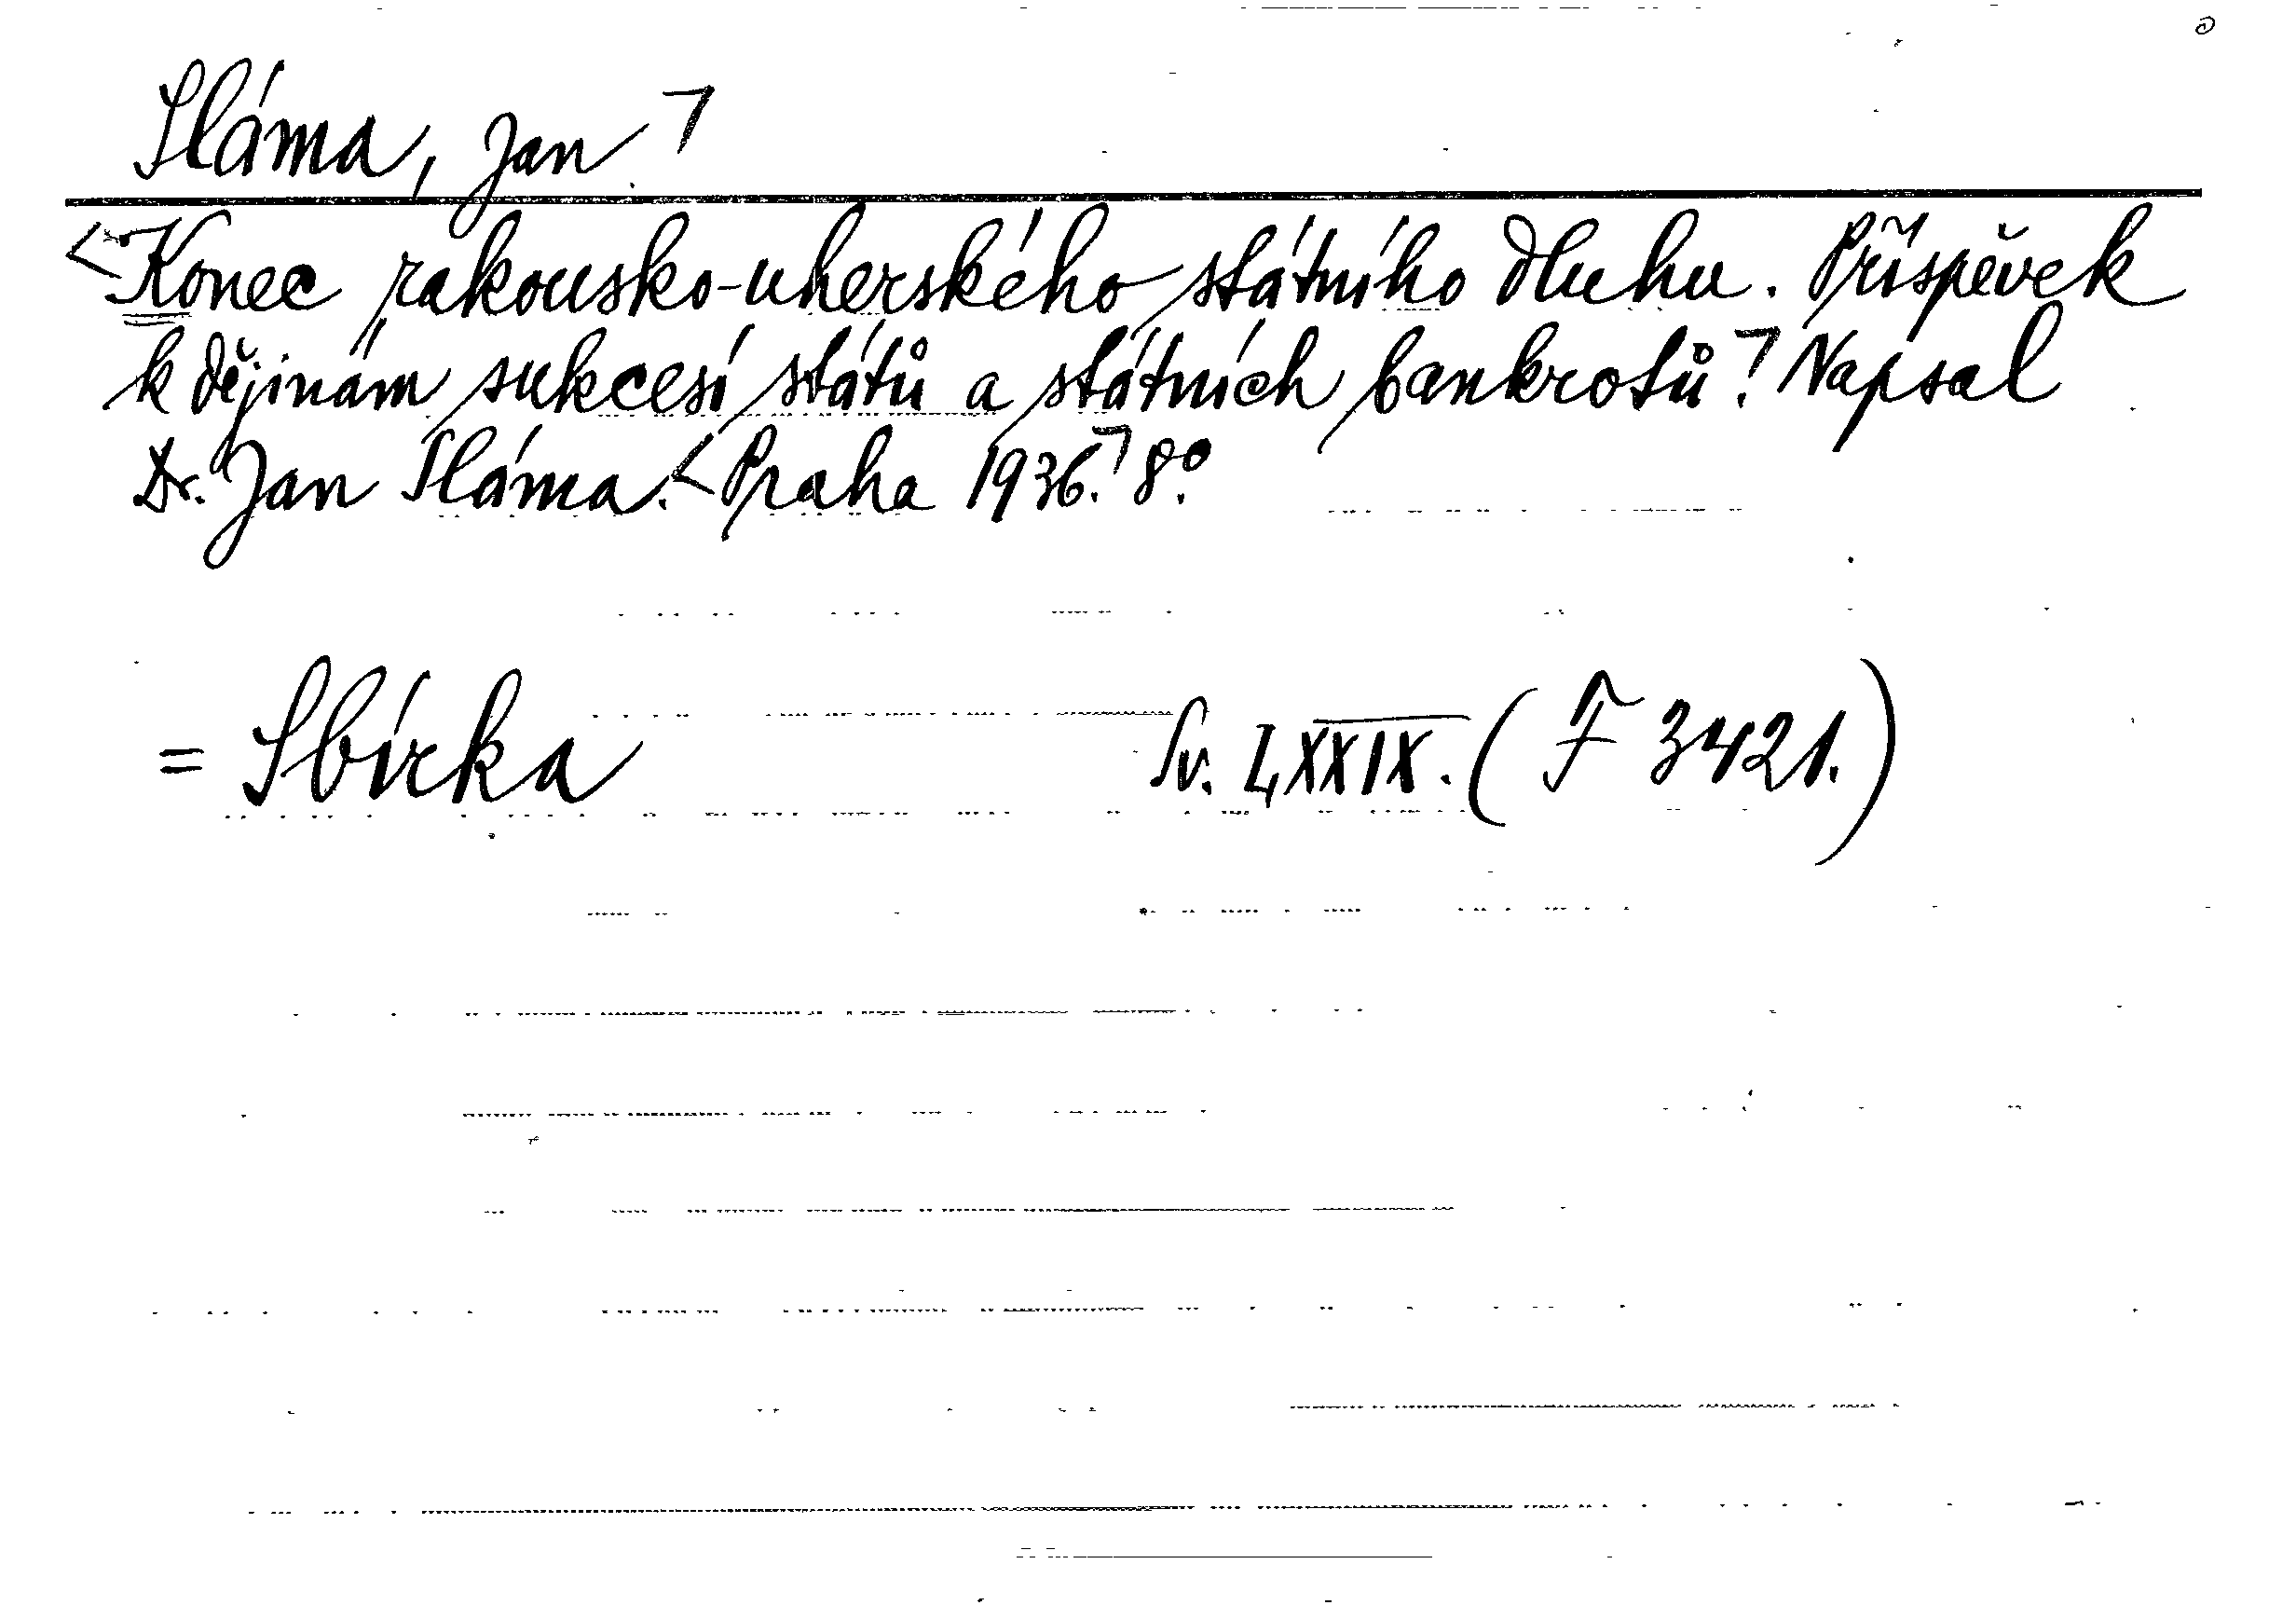 Sláma, Jan
Konec rakousko-uherského státního dluhu. Příspěvek
k dějinám sukcesí států a státních bankrotů. Napsal
Dr. Jan Sláma. Praha 1936. 8º.
= Sbírka Sv. LXXIX. (F 3421.)